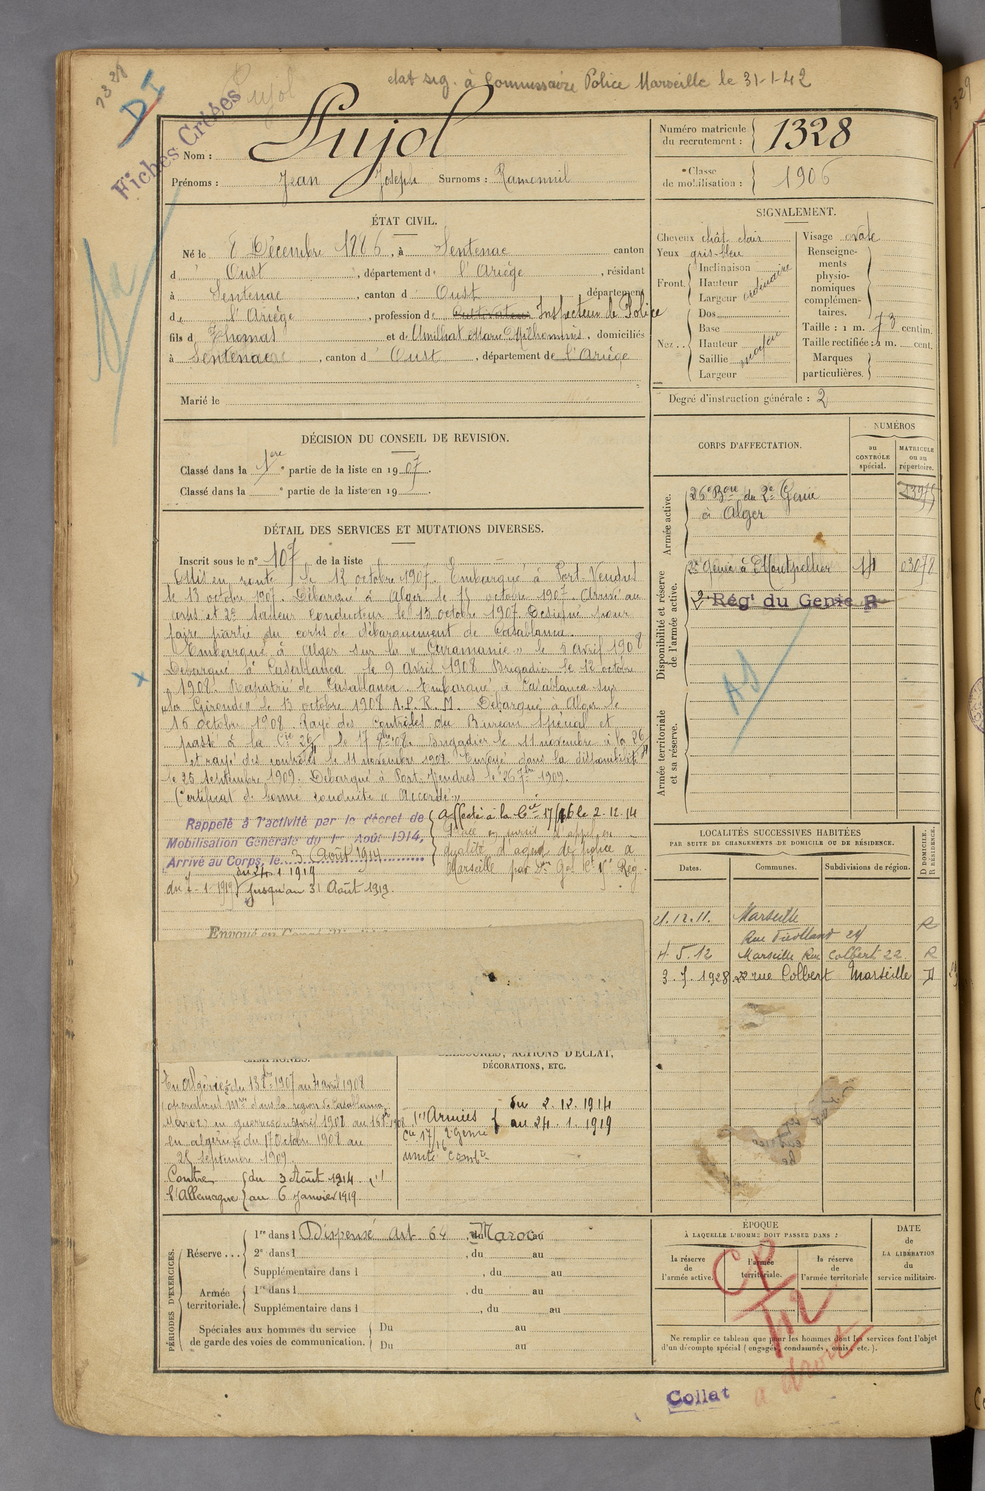 état sig. à Commissaire Police Marseille le 31-1-42
1328
DI
Fiches Créées
Pujol
Nom : Pujol
Prénoms : Jean Joseph Surnoms : Ramounil
Numéro matricule du recrutement : 1328
Classe de mobilisation : 1906
ÉTAT CIVIL.
Né le 8 Décembre 1886, à Sentenac canton
d' Oust, département de l'Ariège, résidant
à Sentenac, canton d' Oust département
de l'Ariège, profession de Cultivateur Inspecteur de Police
fils d Thomas et de Amilhat Marie, domiciliés
à Sentenac, canton d' Oust, département de l'Ariège
Marié le
SIGNALEMENT.
Cheveux chât clair
Yeux gris-bleu
Front. Inclinaison
Hauteur
Largeur
ordinaire
Nez. Dos
Base
Hauteur
Saillie
Largeur
moyen
Visage ovale
Renseignements physionomiques complémentaires.
Taille : 1 m. 73 centim.
Taille rectifiée : 1 m. cent.
Marques particulières.
Degré d'instruction générale : 2
DÉCISION DU CONSEIL DE REVISION.
Classé dans la 1ere partie de la liste en 1907.
Classé dans la e partie de la liste en 19 .
CORPS D'AFFECTATION.
NUMÉROS
au CONTRÔLE spécial.
MATRICULE ou au répertoire.
Armée active.
26e Bon du 2e Génie
à Alger
Disponibilité et réserve de l'armée active.
2e Génie à Montpellier
2e Rég' du Genie R
Armée territoriale et sa réserve.
DÉTAIL DES SERVICES ET MUTATIONS DIVERSES.
Inscrit sous le n° 107 de la liste
Mis en route le 12 octobre 1907. Embarqué à Port-Vendres
le 13 octobre 1907. Débarqué à Alger le 15 octobre 1907. Arrivé au
corps et 2e sapeur conducteur le 15 octobre 1907. Désigné pour
faire partie du corps de débarquement de Casablanca.
Embarqué à Alger sur la "Caramanie" le 4 avril 1908
Débarqué à Casablanca le 9 avril 1908. Brigadier le 12 octobre
1908. Rapatrié de Casablanca. Embarqué à Casablanca sur
"la Gironde" le 13 octobre 1908 A.P.R.M. Débarqué à Alger le
16 octobre 1908. Rayé des contrôles du Bureau spécial et
passé à la Cie 26/ le 17 8bre 08. Brigadier le 11 novembre à la 26/
et rayé des contrôles le 11 novembre 1908. Envoyé dans la disponibilité
le 25 septembre 1909. Débarqué à Port-Vendres le 26 7bre 1909.
Certificat de bonne conduite "Accordé"
Rappelé à l'activité par le décret de
Mobilisation Générale du 1er Août 1914,
Arrivé au Corps, le 3 Août 1914
Affecté à la Cie 17/16 le 2-12-14
Placé en sursis d'appel en
qualité d'agent de police à
Marseille par Dn Gal Ct Re Rég.
du 24 1 1919
du 7-1-1919 jusqu'au 31 Août 1919.
LOCALITÉS SUCCESSIVES HABITÉES
PAR SUITE DE CHANGEMENTS DE DOMICILE OU DE RÉSIDENCE.
Dates. Communes. Subdivisions de région. D DOMICILE. R RÉSIDENCE.
1.12.11. Marseille R
Rue 24
4.5.12 Marseille Rue Colbert 22 R
3.7.1928 22 rue Colbert Marseille D
CAMPAGNES.
En Algérie du 15 8bre 1907 au 4 avril 1908
opérations mres dans la région de Casablanca
(Maroc) en guerre
en Algérie du 17 Octobre 1908 au
25 septembre 1909.
Contre l'Allemagne du 3 Août 1914 au 6 Janvier 1919.
BLESSURES, ACTIONS D'ÉCLAT, DÉCORATIONS, ETC.
Armées du 2.12.1914 au 24.1.1919
Cie 17/16 2e Génie
unité combte
PÉRIODES D'EXERCICES.
Réserve . . . 1re dans l Dispensé Art. 64, Maroc
2e dans l , du au
Supplémentaire dans l , du au
Armée territoriale. 1re dans l , du au
Supplémentaire dans l , du au
Spéciales aux hommes du service de garde des voies de communication. Du au
Du au
ÉPOQUE
À LAQUELLE L'HOMME DOIT PASSER DANS :
la réserve de l'armée active.
l'armée territoriale.
la réserve de l'armée territoriale
DATE de LA LIBÉRATION du service militaire.
CP
a droit
Ne remplir ce tableau que pour les hommes dont les services font l'objet
d'un décompte spécial (engagés, condamnés, omis, etc.).
Collat